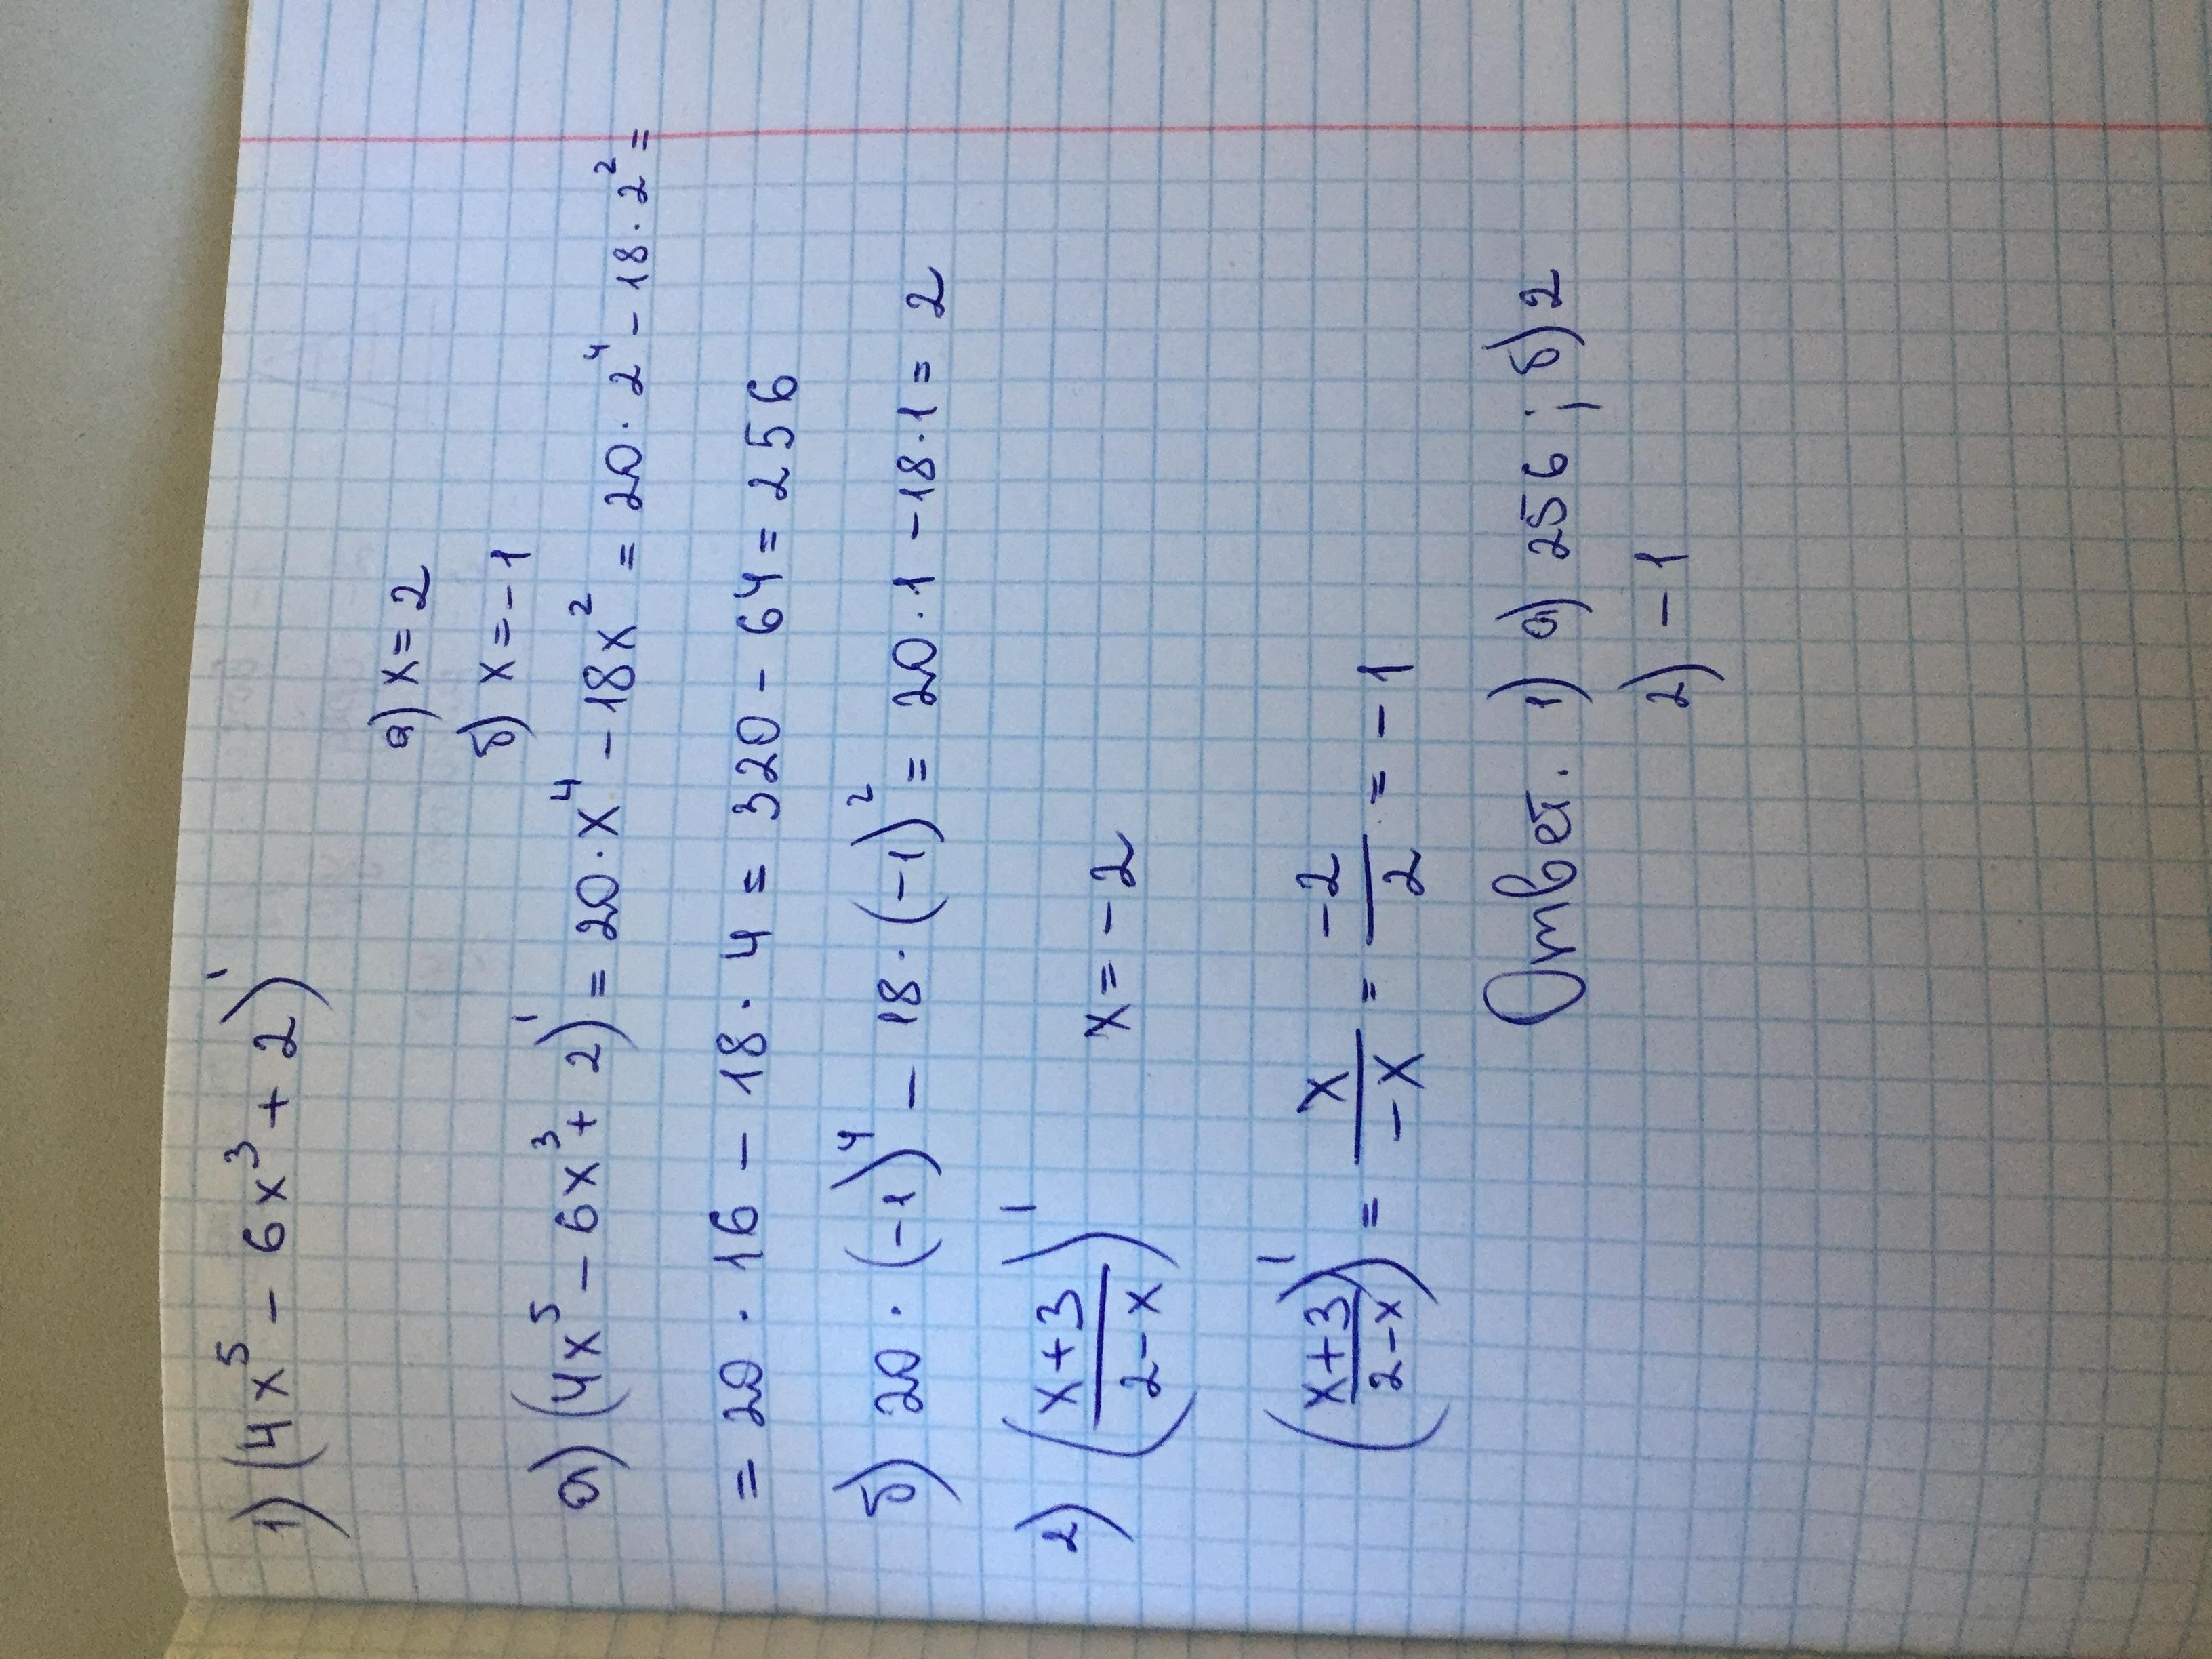 1) (4x⁵ - 6x³ + 2)'
а) x = 2
б) x = -1
а) (4x⁵ - 6x³ + 2)' = 20 · x⁴ - 18x² = 20 · 2⁴ - 18 · 2² =
= 20 · 16 - 18 · 4 = 320 - 64 = 256
б) 20 · (-1)⁴ - 18 · (-1)² = 20 · 1 - 18 · 1 = 2
2) ((x+3)/(2-x))' x = -2
((x+3)/(2-x))' = x/(-x) = -2/2 = -1
Ответ. 1) а) 256 ; б) 2
2) -1